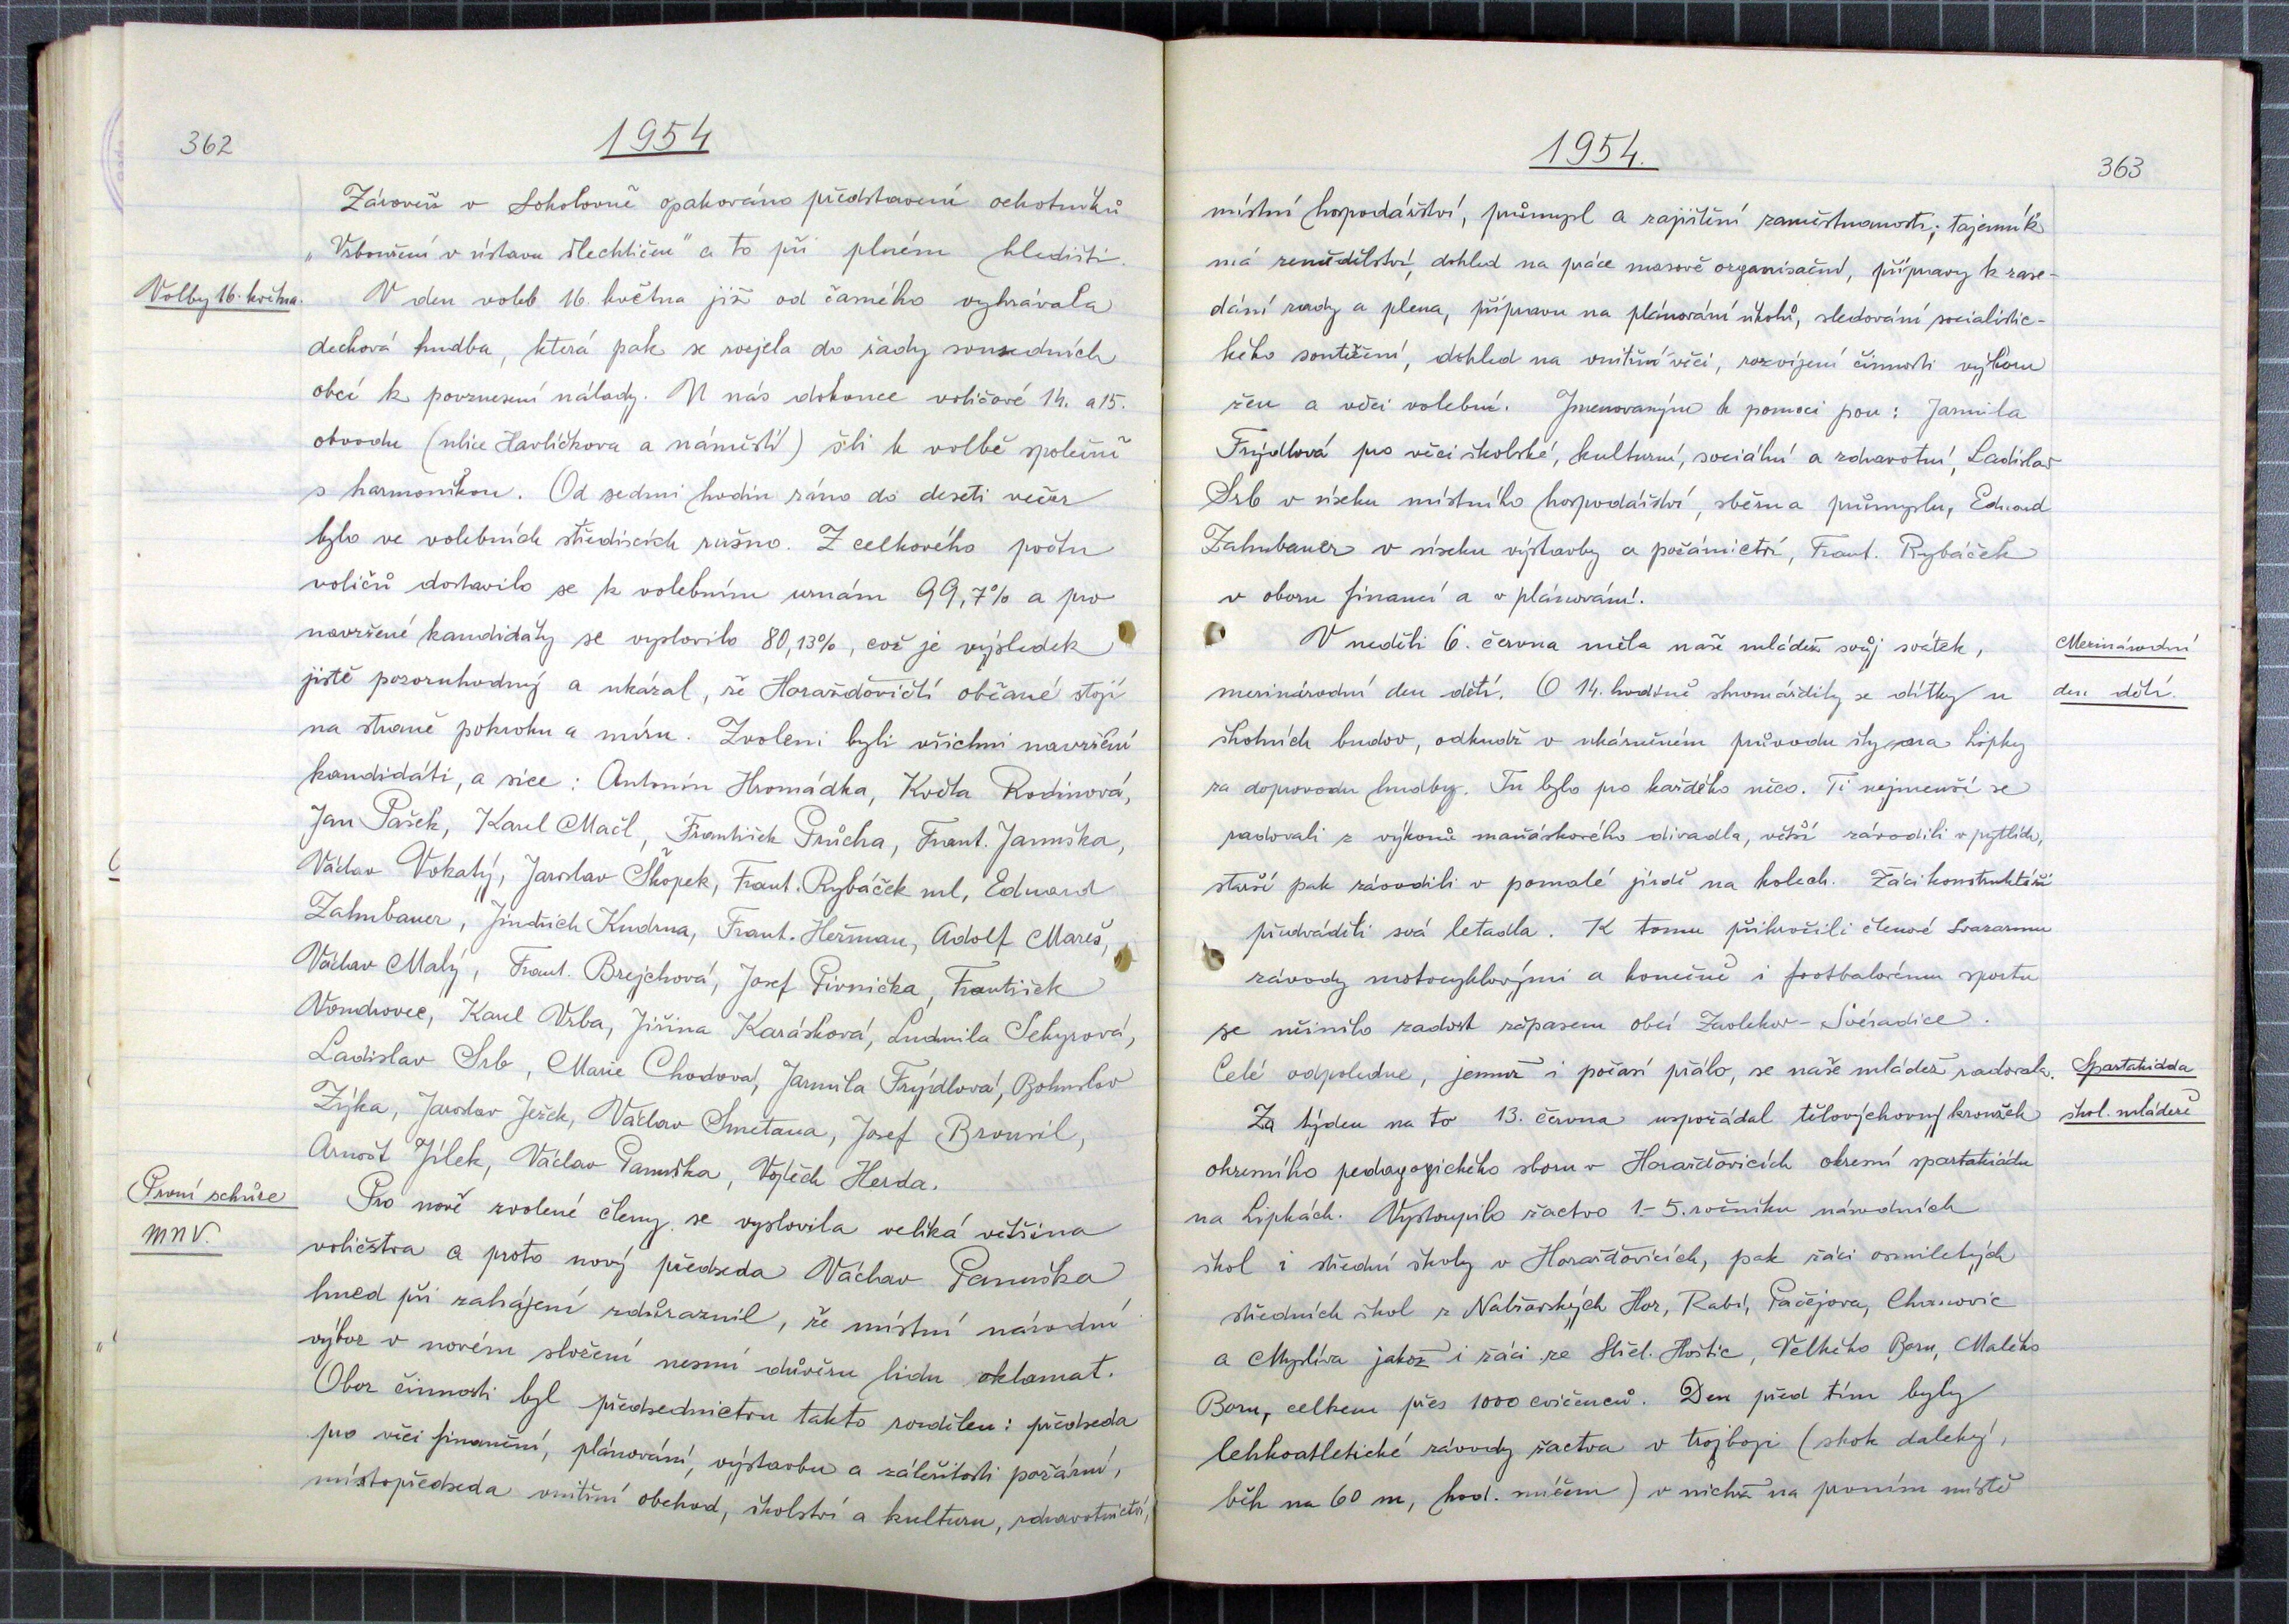 362
1954
Zároveň v Sokolovně opakováno představení ochotníků
„Vzbouření v ústavu šlechtičen" a to při plném hledišti.
Volby 16. května.
V den voleb 16. května již od časného vyhrávala
dechová hudba, která pak se rozjela do řady sousedních
obcí k povznesení nálady. U nás dokonce voličové 14. a 15.
obvodu (ulice Havlíčkova a náměstí) šli k volbě společně
s harmonikou. Od sedmi hodin ráno do deseti večer
bylo ve volebních střediscích rušno. Z celkového počtu
voličů dostavilo se k volebním urnám 99,7% a pro
navržené kandidáty se vyslovilo 80,13%, což je výsledek
jistě pozoruhodný a ukázal, že Horažďovičtí občané stojí
na straně pokroku a míru. Zvoleni byli všichni navržení
kandidáti, a sice: Antonín Hromádka, Květa Rodinová,
Jan Pašek, Karel Mačl, František Průcha, Frant. Januška,
Václav Vokatý, Jaroslav Škopek, Frant. Rybáček ml, Eduard
Zahnbauer, Jindřich Kudrna, Frant. Heřman, Adolf Mareš,
Václav Malý, Frant. Brejchová, Josef Pivnička, František
Vondrovec, Karel Vrba, Jiřina Karásková, Ludmila Sekyrová,
Ladislav Srb, Marie Chodová, Jarmila Frýdlová, Bohuslav
Zýka, Jaroslav Ježek, Václav Smetana, Josef Brousil,
Arnošt Jílek, Václav Panuška, Vojtěch Herda.
První schůze
MNV.
Pro nově zvolené členy se vyslovila veliká většina
voličstva a proto nový předseda Václav Panuška
hned při zahájení zdůraznil, že místní národní
výbor v novém složení nesmí důvěru lidu oklamat.
Obor činnosti byl předsednictvu takto rozdělen: předseda
pro věci finanční, plánování, výstavbu a záležitosti požární,
místopředseda vnitřní obchod, školství a kulturu, zdravotnictví,
1954.
363
místní hospodářství, průmysl a zajištění zaměstnanosti; tajemník
má zemědělství, dohled na práce masově organisační, přípravy k zase-
dání rady a plena, přípravu na plánování úkolů, sledování socialistic-
kého soutěžení, dohled na vnitřní věci, rozvíjení činnosti výboru
žen a věci volební. Jmenovaným k pomoci jsou: Jarmila
Frýdlová pro věci školské, kulturní, sociální a zdravotní, Ladislav
Srb v úseku místního hospodářství, sběru a průmyslu, Eduard
Zahnbauer v úseku výstavby a požárnictví, Frant. Rybáček
v oboru financí a v plánování.
V neděli 6. června měla naše mládež svůj svátek,
Mezinárodní
den dětí.
mezinárodní den dětí. O 14. hodině shromáždily se dítky u
školních budov, odkudž v ukázněném průvodu šly na Lipky
za doprovodu hudby. Tu bylo pro každého něco. Ti nejmenší se
radovali z výkonů maňáskového divadla, větší závodili v pytlích,
starší pak závodili v pomalé jízdě na kolech. Žáci konstruktéři
předváděli svá letadla. K tomu přikročili členové Svazarmu
závody motocyklovými a konečně i footbalovému sportu
se učinilo radost zápasem obcí Zavlekov - Svéradice.
Celé odpoledne, jemuž i počasí přálo, se naše mládež radovala.
Spartakiáda
škol. mládeže
Za týden na to 13. června uspořádal tělovýchovný kroužek
okresního pedagogického sboru v Horažďovicích okresní spartakiádu
na Lipkách. Vystoupilo žactvo 1.-5. ročníku národních
škol i střední školy v Horažďovicích, pak žáci osmiletých
středních škol z Nalžovských Hor, Rabí, Pačejova, Chanovic
a Myslíva jakož i žáci ze Střel. Hoštic, Velkého Boru, Malého
Boru, celkem přes 1000 cvičenců. Den před tím byly
lehkoatletické závody žactva v trojboji (skok daleký,
běh na 60 m, hod. míčem) v nichž na prvním místě